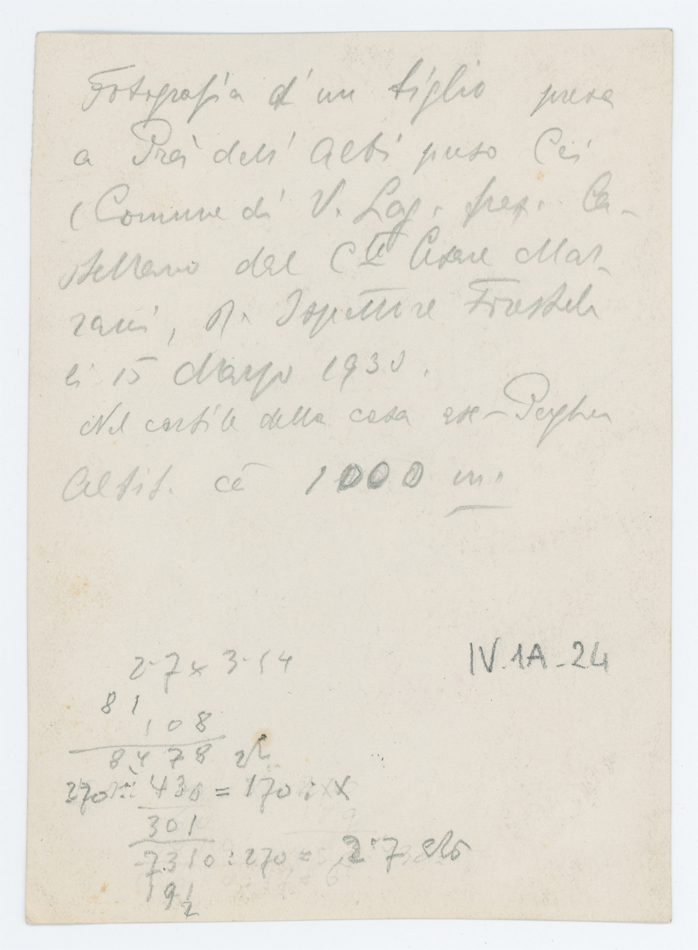 Fotografia d'un tiglio presa
a Prà dell' Albi presso Cei
(Comune di V. Lag. fraz. Ca-
stellano dal Cte Cesare Mar-
zani, R. Ispettore Forestale
li 15 Marzo 1930.
Nel cortile della casa ex-Pegher
Altit. ca 1000 m.
2.7 x 3.14
IV.1A-24
81
108
8478
270 : 430 = 170 : x
301
7310 : 270 = 2.7
19½